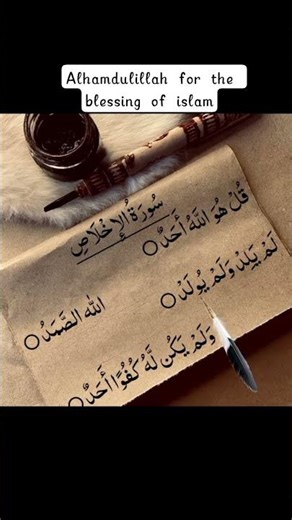 Alhamdulillah for the
blessing of islam
سُورَةُ الإِخْلَاصِ
قُلْ هُوَ اللَّهُ أَحَدٌ
اللَّهُ الصَّمَدُ
لَمْ يَلِدْ وَلَمْ يُولَدْ
وَلَمْ يَكُن لَّهُ كُفُوًا أَحَدٌ